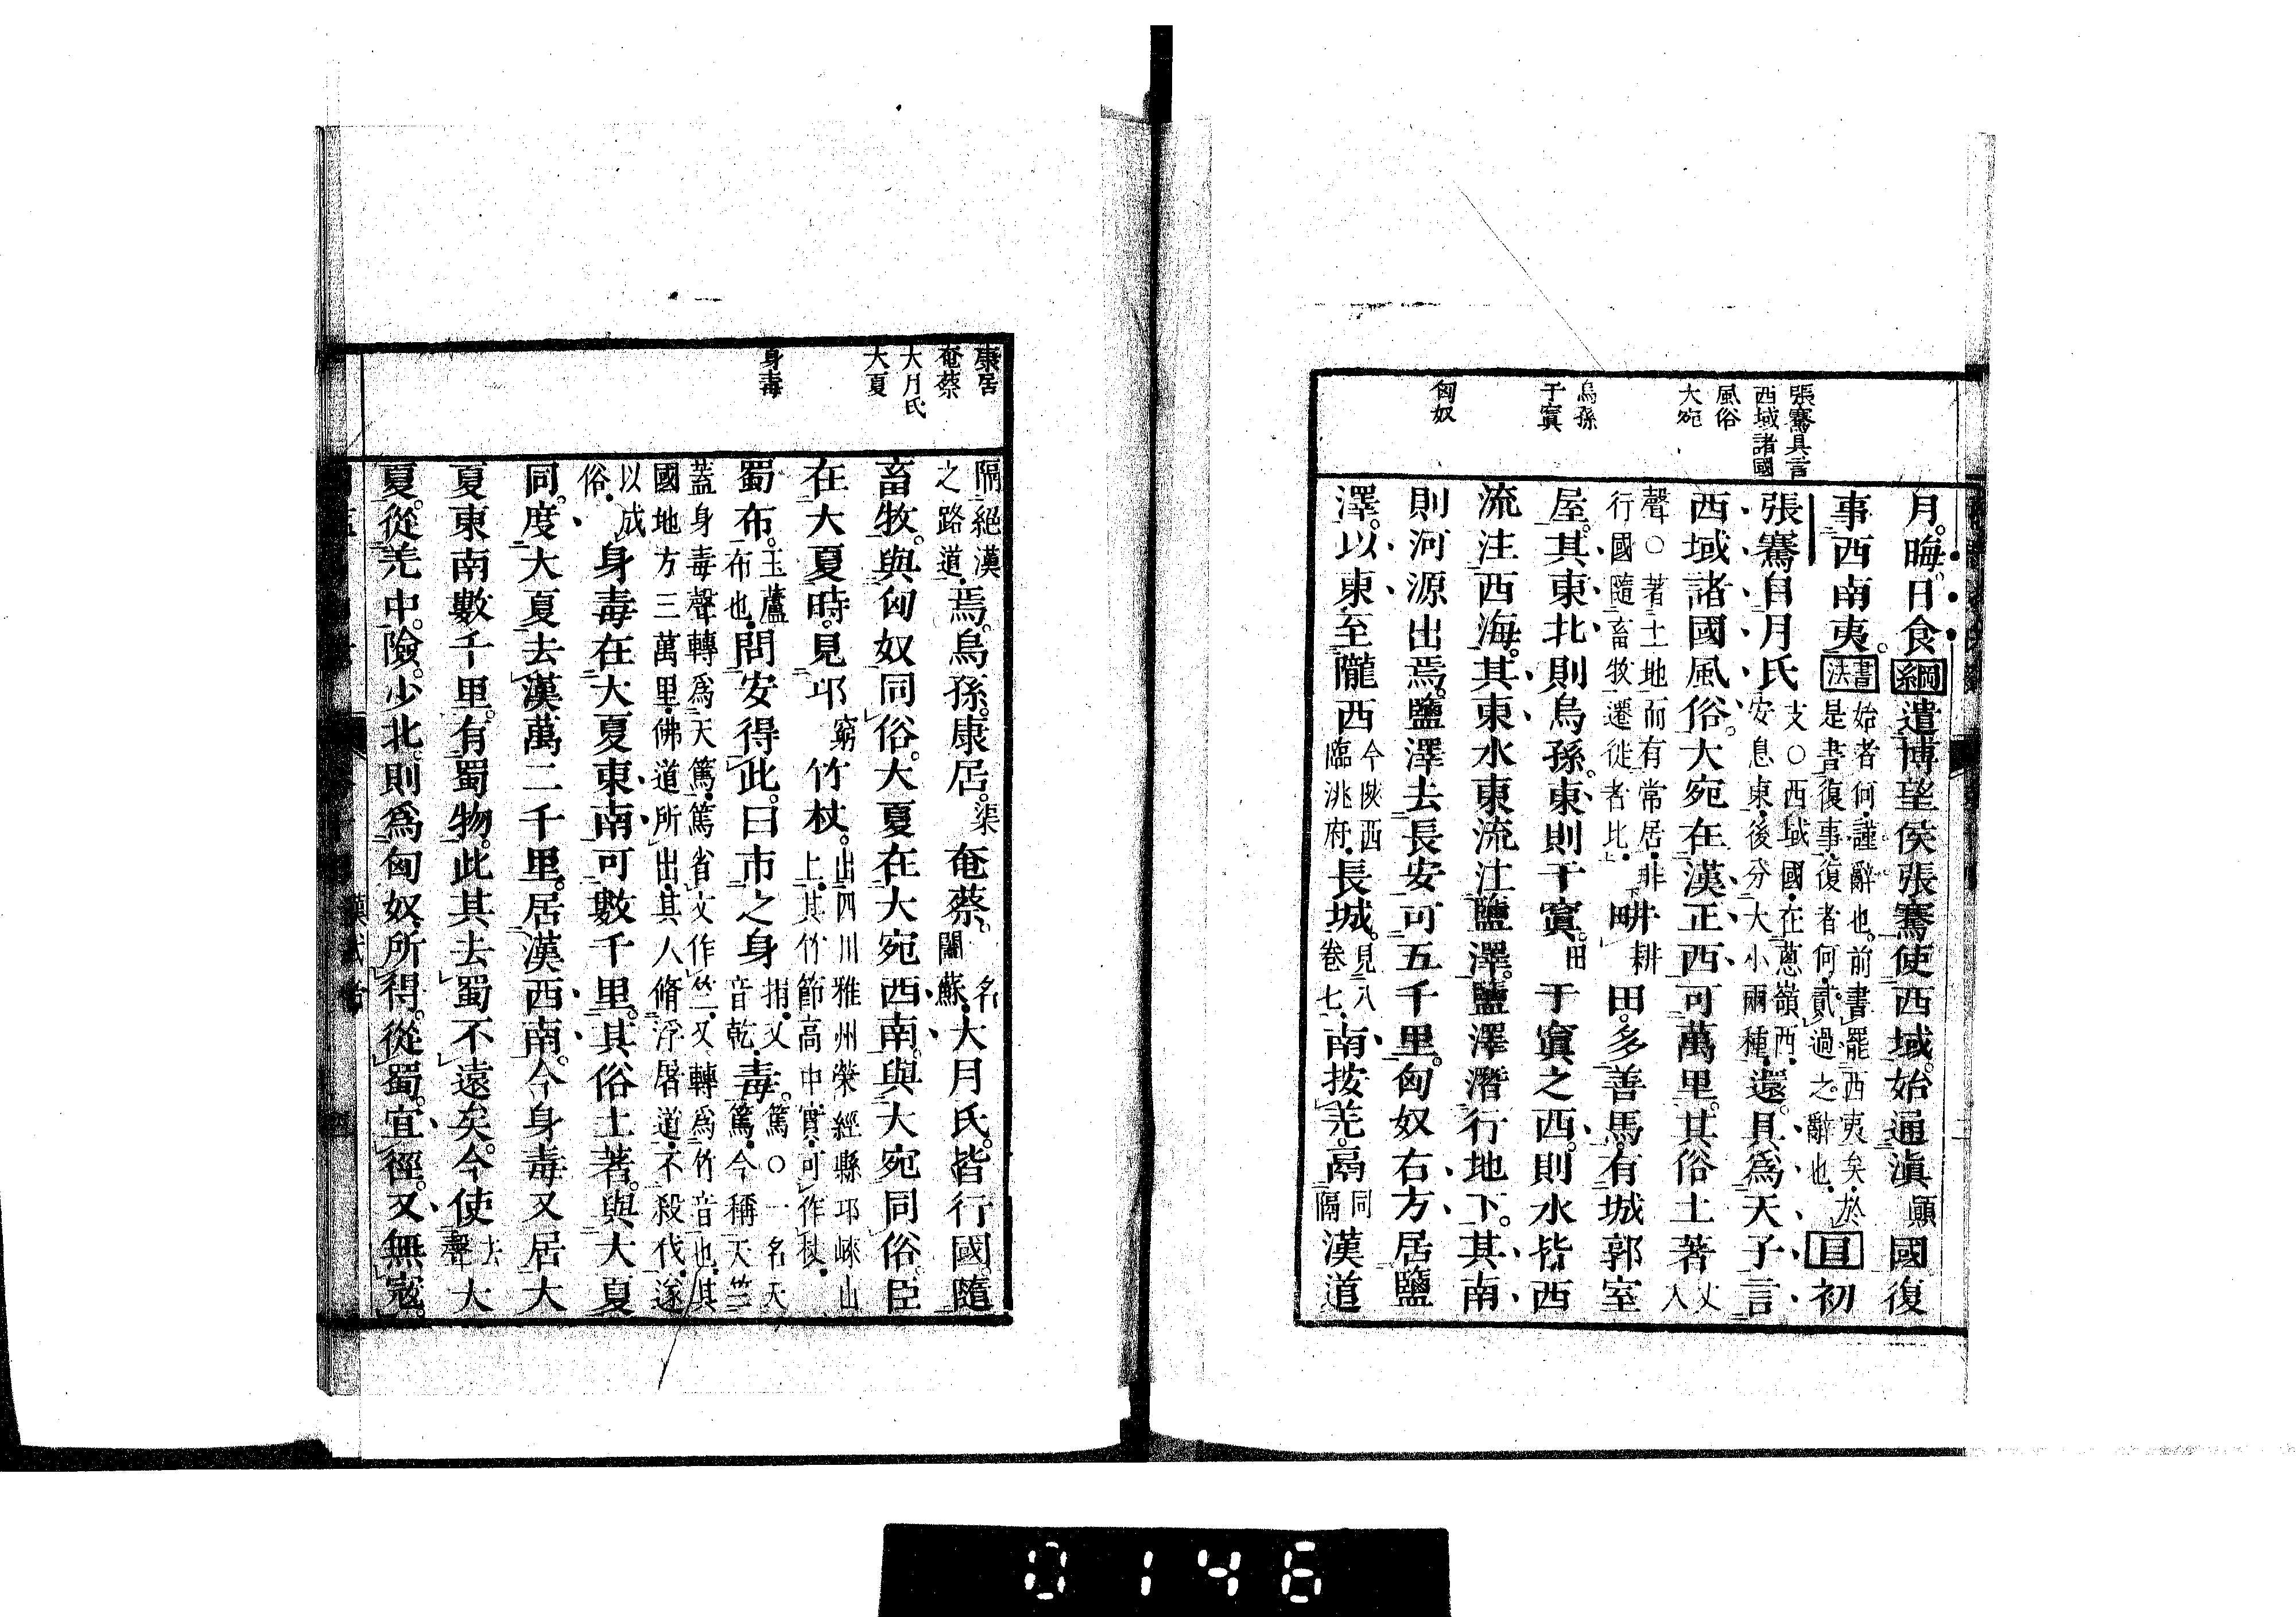 張騫具言
西域諸國
風俗
大宛
烏孫
于窴
匈奴
月。晦。日食綱遣博望侯張騫使西域。始通滇顚國復
事西南夷。書法始者何。謹辭也。前書罷西夷矣。於是書復事。復者何。貳過之辭也。目初
張騫自月氏支○西域國。在蔥嶺西。安息東。後分大小兩種。還。具爲天子言
西域諸國風俗。大宛在漢正西可萬里。其俗土著丈入
聲○著土地而有常居。非行國隨畜牧遷徙者比。畊耕田。多善馬。有城郭室
屋。其東北則烏孫。東則于窴。田于窴之西。則水皆西
流注西海。其東水東流注鹽澤。鹽澤潛行地下。其南
則河源出焉。鹽澤去長安可五千里。匈奴右方居鹽
澤。以東至隴西今陝西臨洮府。長城。見八卷七。南接羌。鬲同隔漢道
康居
奄蔡
大月氏
大夏
身毒
隔絕漢之路道。焉。烏孫。康居。渠奄蔡。名闔蘇。大月氏。皆行國。隨
畜牧。與匈奴同俗。大夏在大宛西南。與大宛同俗。臣
在大夏時。見邛窮竹杖。出四川雅州榮經縣邛崍山上。其竹節高中實。可作杖。
蜀布。玉蘆布也。問安得此。曰市之身捐。又音乾。毒。篤○一名天篤。今稱天竺
蓋身毒聲轉爲天篤。篤省文作竺。又轉爲竹音也。其國地方三萬里。佛道所出。其人脩浮屠道。不殺伐。遂
以成俗。身毒在大夏東南可數千里。其俗土著。與大夏
同。度大夏去漢萬二千里。居漢西南。今身毒又居大
夏東南數千里。有蜀物。此其去蜀不遠矣。今使去聲大
夏。從羌中。險。少北。則爲匈奴所得。從蜀。宜徑。又無寇。